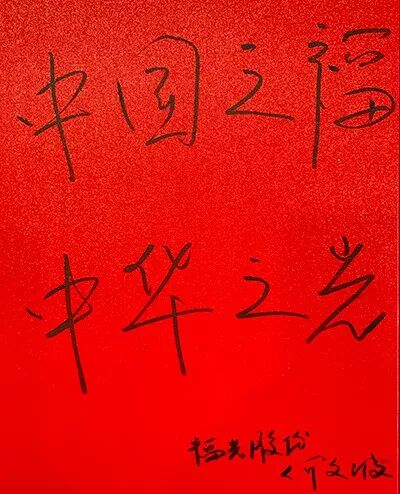 中国之福
中华之光
福光股份
文波